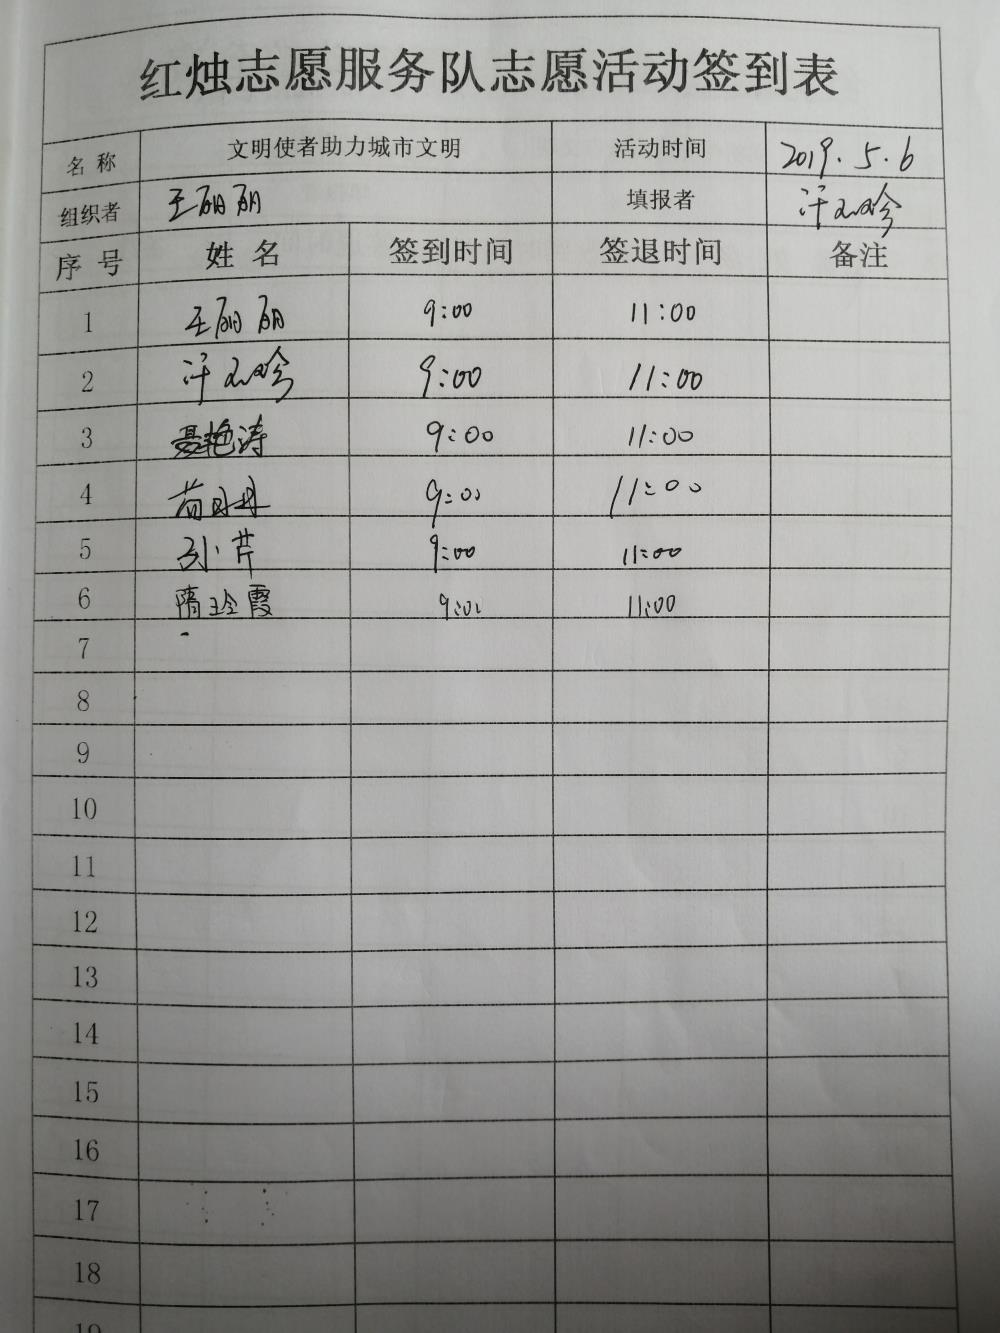 红烛志愿服务队志愿活动签到表
名 称 文明使者助力城市文明 活动时间 2019.5.6
组织者 王丽丽 填报者
序 号 姓 名 签到时间 签退时间 备注
1 王丽丽 9:00 11:00
2 9:00 11:00
3 聂艳涛 9:00 11:00
4 苘丹丹 9:00 11:00
5 孙芹 9:00 11:00
6 隋玲霞 9:00 11:00
7
8
9
10
11
12
13
14
15
16
17
18
19